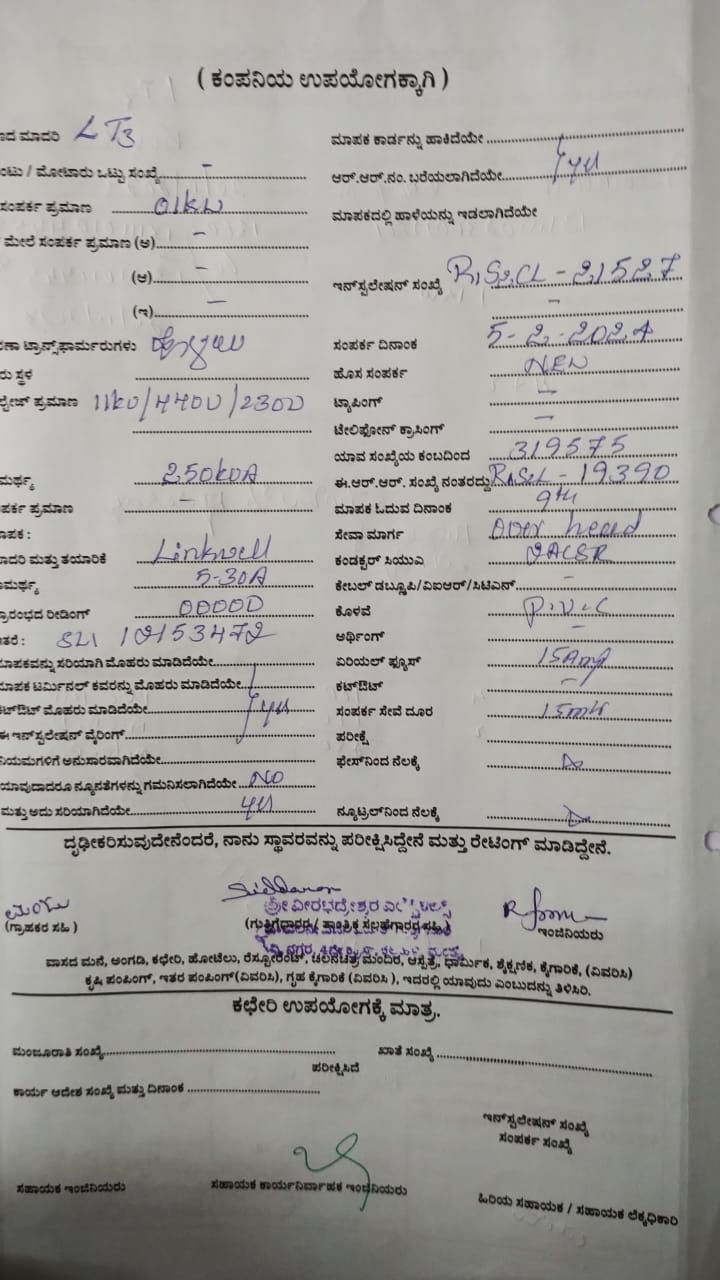 ( ಕಂಪನಿಯ ಉಪಯೋಗಕ್ಕಾಗಿ )
ಮಾದರಿ LT3
ಮಾಪಕ ಕಾರ್ಡನ್ನು ಹಾಕಿದೆಯೇ
/ ಮೋಟಾರು ಒಟ್ಟು ಸಂಖ್ಯೆ -
ಆರ್.ಆರ್.ನಂ. ಬರೆಯಲಾಗಿದೆಯೇ yes
ಸಂಪರ್ಕ ಪ್ರಮಾಣ 01kW
ಮಾಪಕದಲ್ಲಿ ಹಾಳೆಯನ್ನು ಇಡಲಾಗಿದೆಯೇ
ಮೇಲೆ ಸಂಪರ್ಕ ಪ್ರಮಾಣ (ಅ) -
(ಆ) -
ಇನ್‌ಸ್ಟಲೇಷನ್ ಸಂಖ್ಯೆ - 21527
(ಇ) -
-
ಟ್ರಾನ್ಸ್‌ಫಾರ್ಮರುಗಳು
ಸಂಪರ್ಕ ದಿನಾಂಕ 5-2-2024
ಸ್ಥಳ
ಹೊಸ ಸಂಪರ್ಕ NEW
ಪ್ರಮಾಣ 11kV/440V/230V
ಟ್ಯಾಪಿಂಗ್ -
ಟೇಲಿಫೋನ್ ಕ್ರಾಸಿಂಗ್ -
ಯಾವ ಸಂಖ್ಯೆಯ ಕಂಬದಿಂದ 319575
250kVA
ಈ.ಆರ್.ಆರ್. ಸಂಖ್ಯೆ ನಂತರದ್ದು - 19390
ಪ್ರಮಾಣ -
ಮಾಪಕ ಓದುವ ದಿನಾಂಕ 9th
ಸೇವಾ ಮಾರ್ಗ Over head
ಮತ್ತು ತಯಾರಿಕೆ Linkwell
ಕಂಡಕ್ಟರ್ ಸಿಯುವಿ
5-30A
ಕೇಬಲ್ ಡಬ್ಲೂಪಿ/ವಿಐಆರ್/ಸಿಟಿಎನ್ -
ರೀಡಿಂಗ್ 00000
ಕೊಳವೆ P.V.C
12153472
ಅರ್ಥಿಂಗ್ -
ಸರಿಯಾಗಿ ಮೊಹರು ಮಾಡಿದೆಯೇ
ಏರಿಯಲ್ ಫ್ಯೂಸ್ 15Amp
ಟರ್ಮಿನಲ್ ಕವರನ್ನು ಮೊಹರು ಮಾಡಿದೆಯೇ
ಕಟ್‌ಔಟ್ -
ಮೊಹರು ಮಾಡಿದೆಯೇ yes
ಸಂಪರ್ಕ ಸೇವೆ ದೂರ
ಈ ಇನ್‌ಸ್ಟಲೇಷನ್ ವೈರಿಂಗ್
ಪರೀಕ್ಷೆ
ಅನುಸಾರವಾಗಿದೆಯೇ
ಫೇಸ್‌ನಿಂದ ನೆಲಕ್ಕೆ
ಯಾವುದಾದರೂ ನ್ಯೂನತೆಗಳನ್ನು ಗಮನಿಸಲಾಗಿದೆಯೇ NO
ಮತ್ತು ಅದು ಸರಿಯಾಗಿದೆಯೇ yes
ನ್ಯೂಟ್ರಲ್‌ನಿಂದ ನೆಲಕ್ಕೆ
ದೃಢೀಕರಿಸುವುದೇನೆಂದರೆ, ನಾನು ಸ್ಥಾವರವನ್ನು ಪರೀಕ್ಷಿಸಿದ್ದೇನೆ ಮತ್ತು ರೇಟಿಂಗ್ ಮಾಡಿದ್ದೇನೆ.
ಶ್ರೀ ವೀರಭದ್ರೇಶ್ವರ
(ಗ್ರಾಹಕರ ಸಹಿ)
ಇಂಜಿನಿಯರು
ವಾಸದ ಮನೆ, ಅಂಗಡಿ, ಕಛೇರಿ, ಹೋಟೆಲು, ರೆಸ್ಟೋರೆಂಟ್, ಚಲನಚಿತ್ರ ಮಂದಿರ, ಆಸ್ಪತ್ರೆ, ಧಾರ್ಮಿಕ, ಶೈಕ್ಷಣಿಕ, ಕೈಗಾರಿಕೆ, (ವಿವರಿಸಿ)
ಕೃಷಿ ಪಂಪಿಂಗ್, ಇತರ ಪಂಪಿಂಗ್(ವಿವರಿಸಿ), ಗೃಹ ಕೈಗಾರಿಕೆ (ವಿವರಿಸಿ), ಇದರಲ್ಲಿ ಯಾವುದು ಎಂಬುದನ್ನು ತಿಳಿಸಿರಿ.
ಕಛೇರಿ ಉಪಯೋಗಕ್ಕೆ ಮಾತ್ರ.
ಮಂಜೂರಾತಿ ಸಂಖ್ಯೆ
ಖಾತೆ ಸಂಖ್ಯೆ
ಪರೀಕ್ಷಿಸಿದೆ
ಕಾರ್ಯ ಆದೇಶ ಸಂಖ್ಯೆ ಮತ್ತು ದಿನಾಂಕ
ಇನ್‌ಸ್ಟಲೇಷನ್ ಸಂಖ್ಯೆ
ಸಂಪರ್ಕ ಸಂಖ್ಯೆ
ಸಹಾಯಕ ಇಂಜಿನಿಯರು
ಸಹಾಯಕ ಕಾರ್ಯನಿರ್ವಾಹಕ ಇಂಜಿನಿಯರು
ಹಿರಿಯ ಸಹಾಯಕ / ಸಹಾಯಕ ಲೆಕ್ಕಾಧಿಕಾರಿ